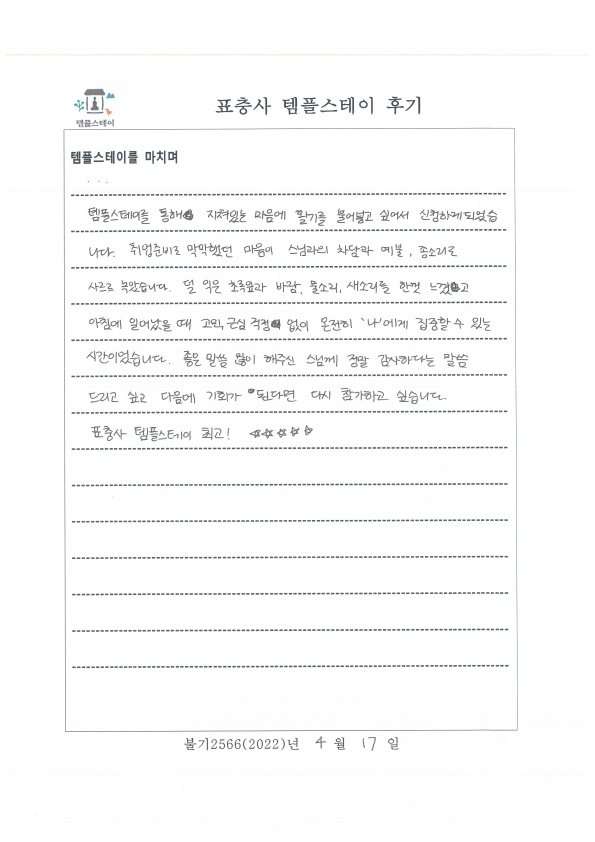 표충사 템플스테이 후기
템플스테이
템플스테이를 마치며
...
템플스테이를 통해 지쳐있는 마음에 활기를 불어넣고 싶어서 신청하게되었습
니다. 취업준비로 막막했던 마음이 스님과의 차담과 예불, 종소리로
사르르 녹았습니다. 덜 익은 초록잎과 바람, 물소리, 새소리를 한껏 느꼈고
아침에 일어났을 때 고민, 근심 걱정 없이 온전히 '나'에게 집중할 수 있는
시간이었습니다. 좋은 말씀 많이 해주신 스님께 정말 감사하다는 말씀
드리고 싶고 다음에 기회가 된다면 다시 참가하고 싶습니다.
표충사 템플스테이 최고! ☆☆☆☆☆
불기2566(2022)년 4 월 17 일